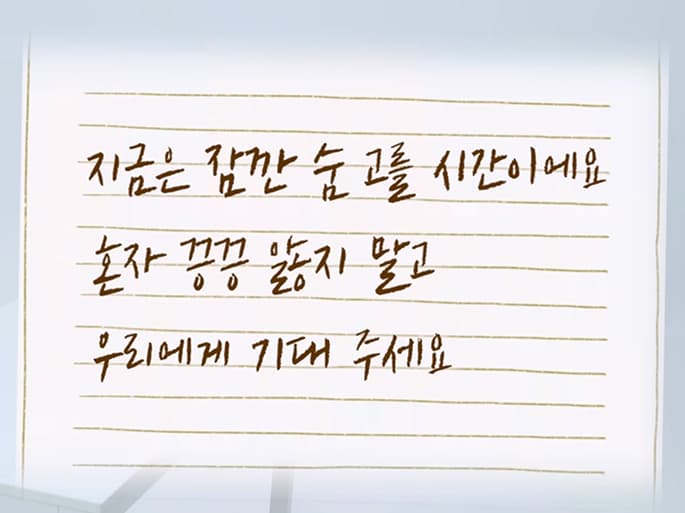 지금은 잠깐 숨 고를 시간이에요
혼자 끙끙 앓지 말고
우리에게 기대 주세요